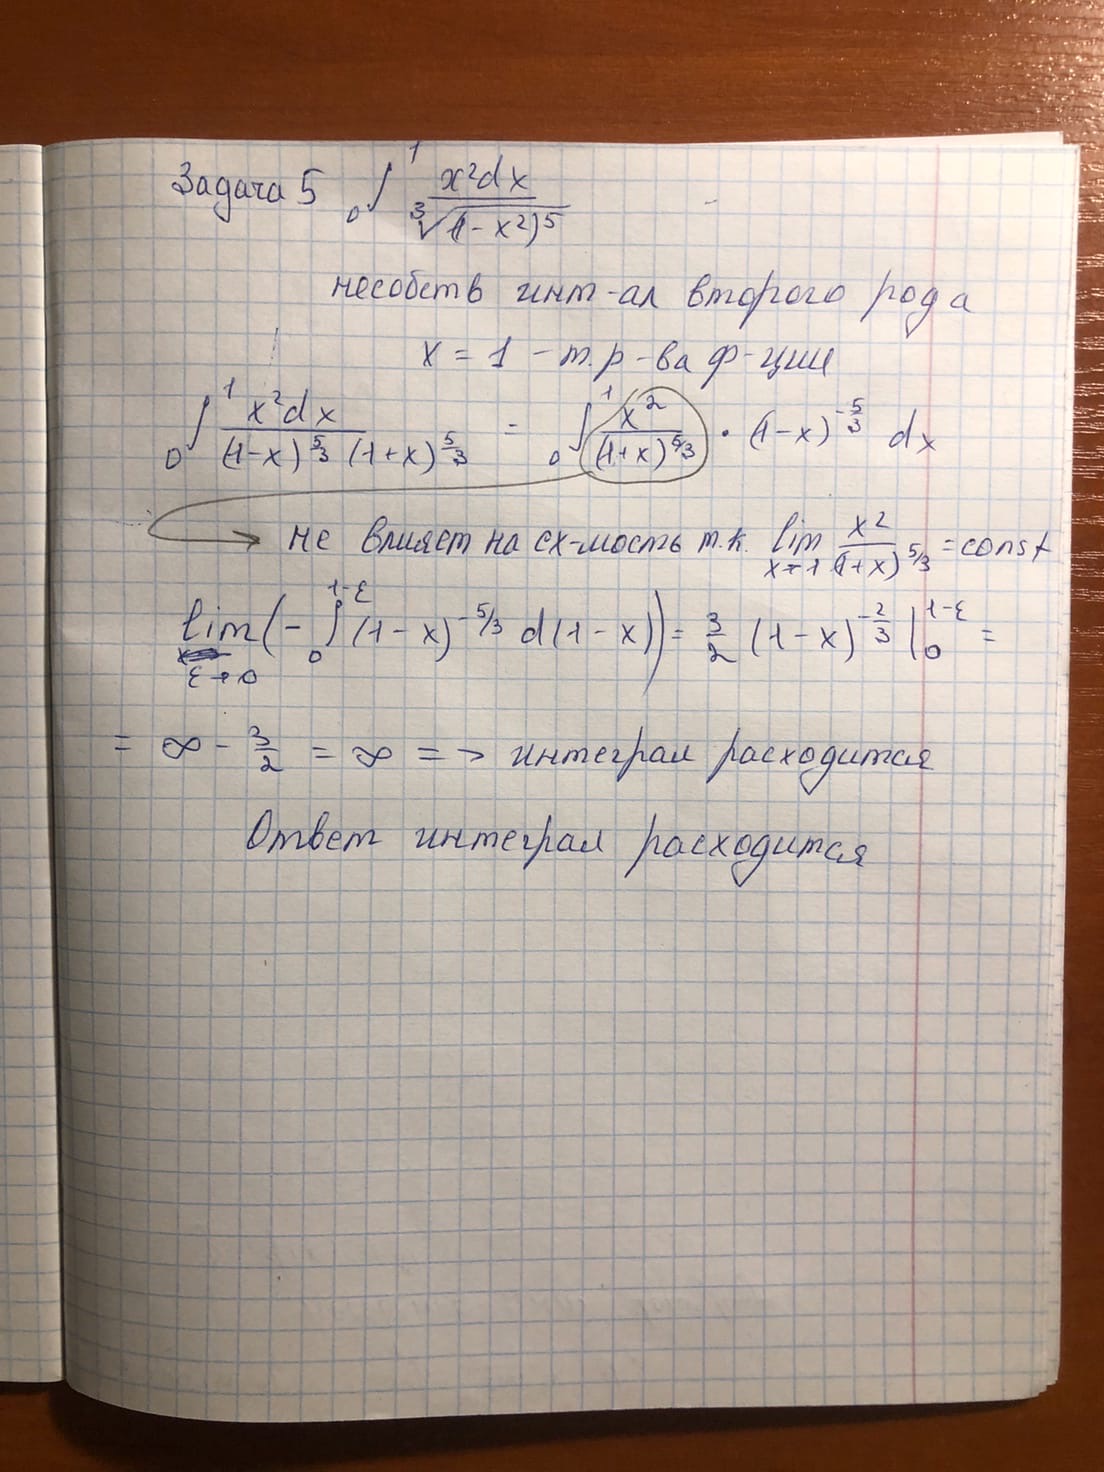 Задача 5 ₀∫¹ x²dx / ∛(1-x²)⁵
несобств инт-ал второго рода
x = 1 - т.р-ва ф-ции
₀∫¹ x²dx / (1-x)^(5/3) (1+x)^(5/3) = ₀∫¹ x² / (1+x)^(5/3) · (1-x)^(-5/3) dx
→ не влияет на сх-мость т.к. lim x→1 x² / (1+x)^(5/3) = const
lim ε→0 (- ₀∫^(1-ε) (1-x)^(-5/3) d(1-x)) = 3/2 (1-x)^(-2/3) |₀^(1-ε) =
= ∞ - 3/2 = ∞ => интеграл расходится
Ответ интеграл расходится